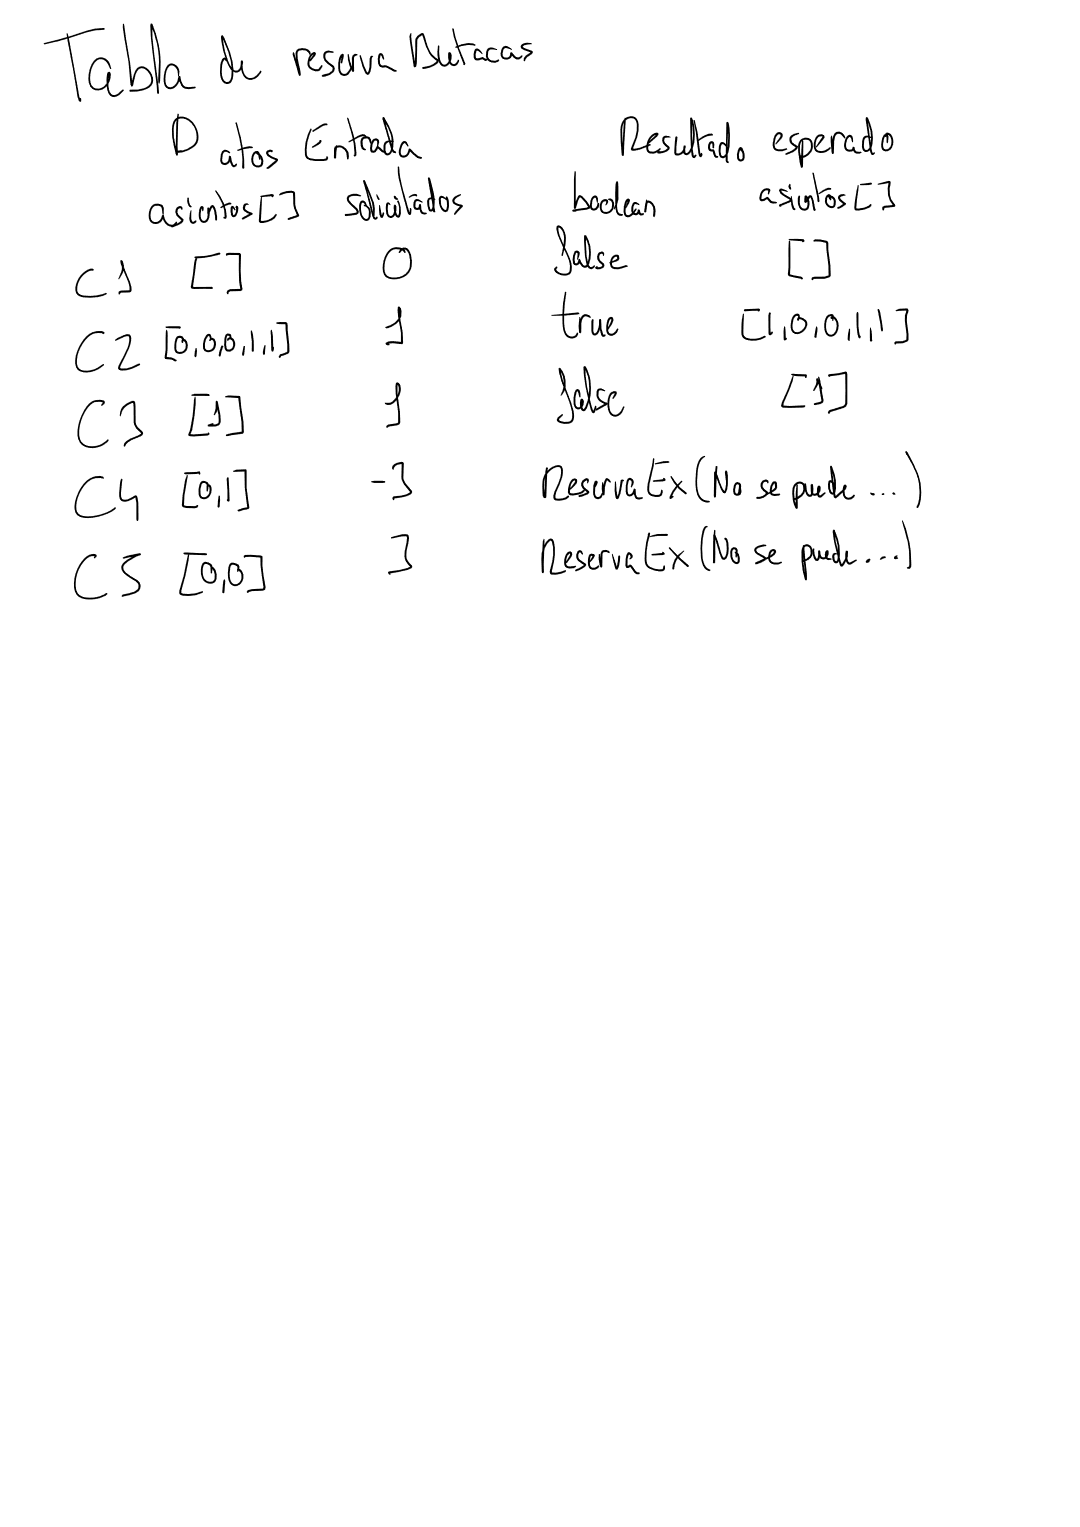 Tabla de reserva Butacas
Datos Entrada Resultado esperado
asientos[] solicitados boolean asientos[]
C1 [] 0 false []
C2 [0,0,0,1,1] 1 true [1,0,0,1,1]
C3 [1] 1 false [1]
C4 [0,1] -3 ReservaEx (No se puede ...)
C5 [0,0] 3 ReservaEx (No se puede ...)